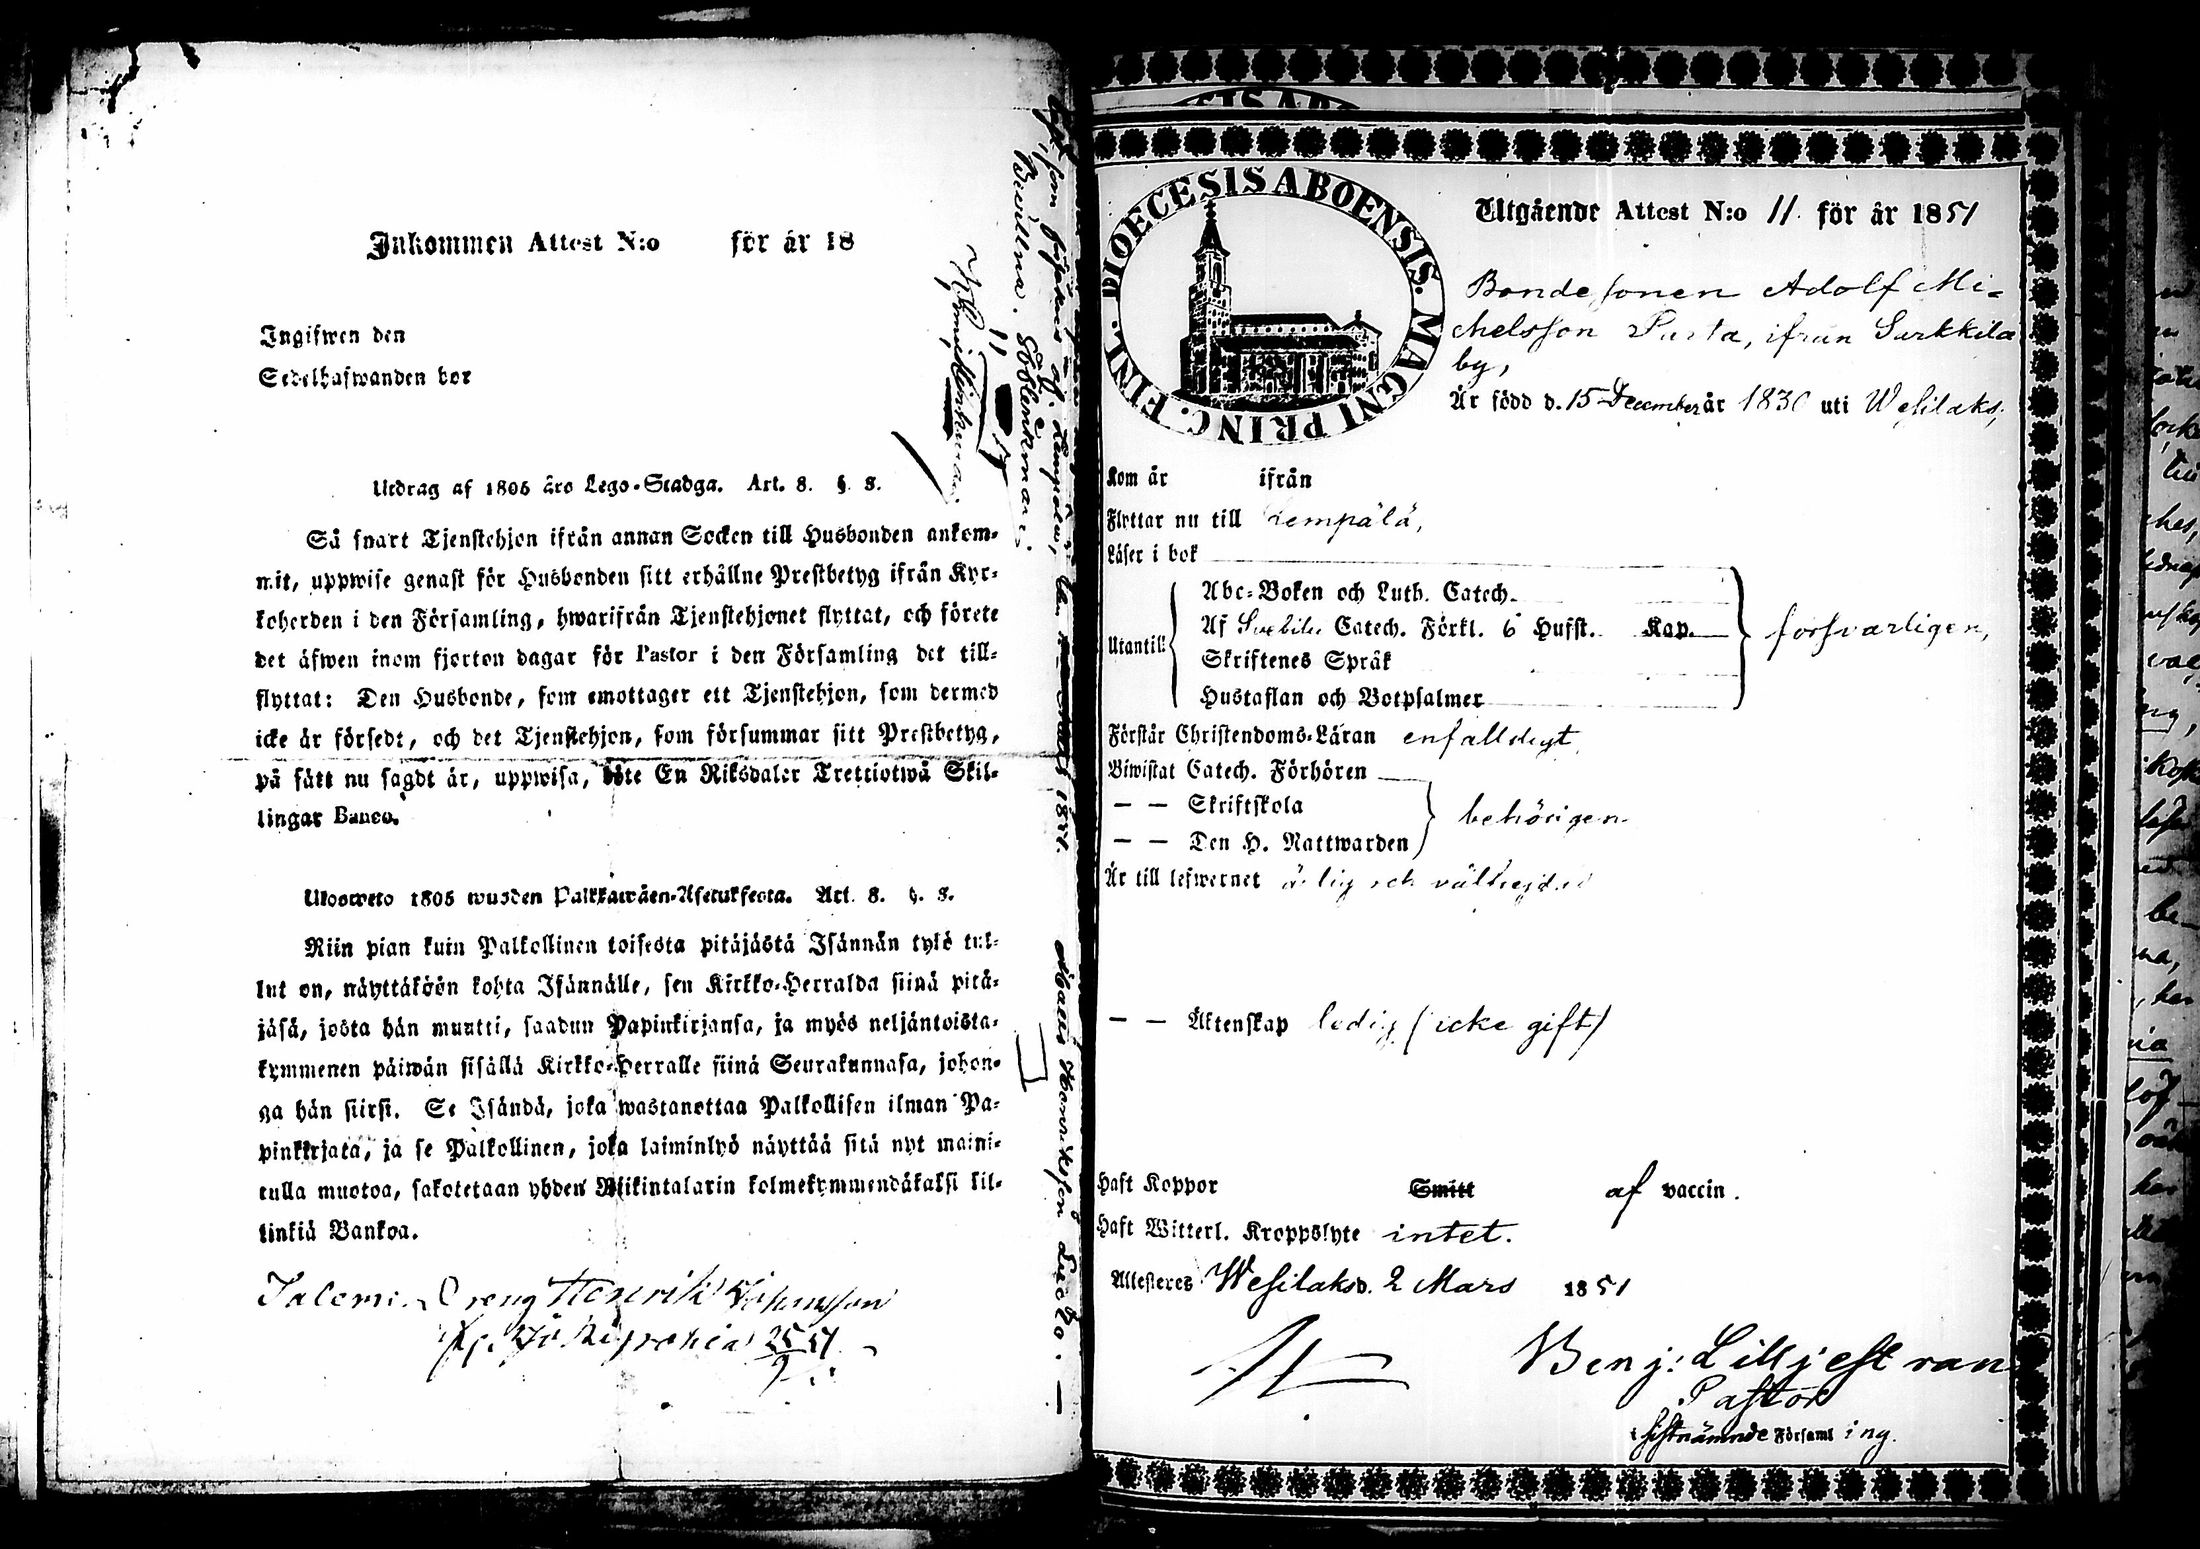 Inkommen Attest N:o för år 18
Ingifwen den
Sedelhafwanden bor
Utdrag af 1805 års Lego-Stadga. Art. 8. §. 8.
Så snart Tjenstehjon ifrån annan Socken till Husbonden ankom-
mit, uppwise genast för Husbonden sitt erhållne Prestbetyg ifrån Kyr-
koherden i den Församling, hwarifrån Tjenstehjonet flyttat, och förete
det äfwen inom fjorton dagar för Pastor i den Församling det till-
flyttat: Den Husbonde, som emottager ett Tjenstehjon, som dermed
icke är försedt, och det Tjenstehjon, som försummar sitt Prestbetyg,
på sätt nu sagdt är, uppwisa, böte En Riksdaler Trettiotwå Skil-
lingar Banco.
Ulosweto 1805 wuoden Palkkawäen-Asetuksesta. Art. 8. §. 8.
Niin pian kuin Palkollinen toisesta pitäjästä Isännän tylö tul-
lut on, näyttäköön kohta Isännälle, sen Kirkko-Herralda siinä pitä-
jäsä, josta hän muutti, saadun Papinkirjansa, ja myös neljäntoista-
kymmenen päiwän sisällä Kirkko-Herralle siinä Seurakunnasa, johon-
ga hän siirsi. Se Isändä, joka wastanottaa Palkollisen ilman Pa-
pinkirjata, ja se Palkollinen, joka laiminlyö näyttää sitä nyt maini-
tulla muotoa, sakotetaan yhden Riikintalarin kolmekymmendäkaksi kil-
linkiä Bankoa.
Dreng Henrik Johansson
Bevillna. Söölenkerman
Matts Henriksson
DIOECESIS ABOENSIS. MAGNI PRINC. FINL.
Utgående Attest N:o 11. för år 1851
Bondesonen Adolf Mi-
chelsson Pusta, ifrån Sarkkila
by,
Är född d. 15 December år 1830 uti Wesilaks,
Kom år ifrån
Flyttar nu till Lempälä,
Läser i bok
Abc-Boken och Luth. Catech.
Af Svebilii Catech. Förkl. 6 Hufst. Kap. försvarligen,
Utantill
Skriftenes Språk
Hustaflan och Botpsalmer
Förstår Christendoms-Läran enfalldigt
Biwistat Catech. Förhören
— — Skriftskola behörigen
— — Den H. Nattwarden
Är till lefwernet ärlig och välfrejdad
— — Äktenskap ledig (icke gift)
Haft Koppor Smitt af vaccin.
Haft Witterl. Kroppslyte intet.
Attesteres Wesilaks d. 2 Mars 1851
Benj: Lilljestran
Pastor
i sistnämnde Församling.